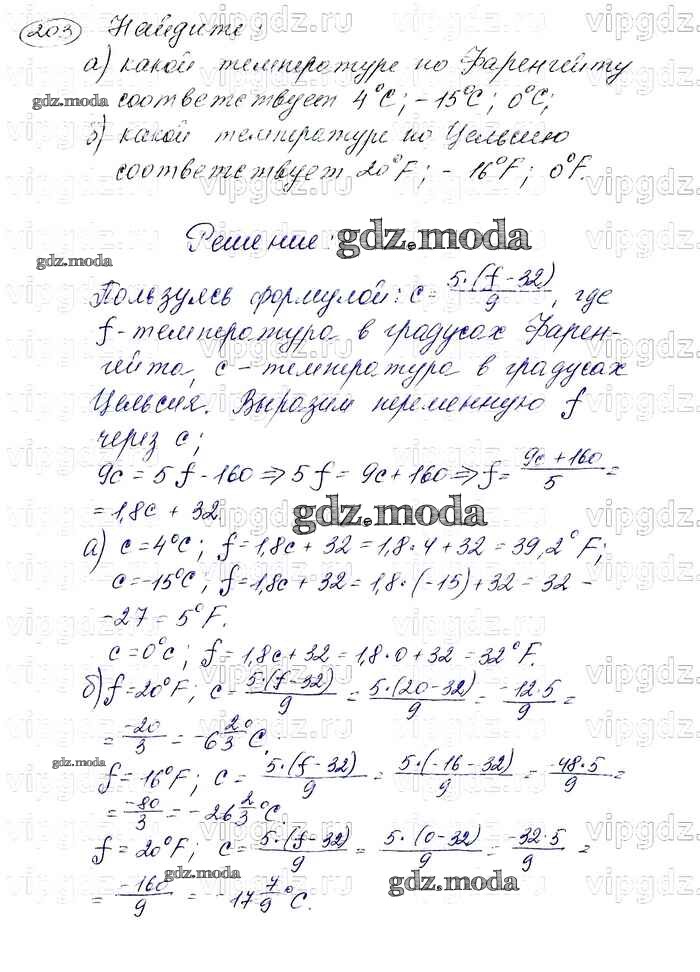 203 Найдите:
а) какой температуре по Фаренгейту
соответствует 4°C; -15°C; 0°C;
б) какой температуре по Цельсию
соответствует 20°F; -16°F; 0°F.
Решение:
Пользуясь формулой: c = 5·(f-32)/9, где
f - температура в градусах Фарен-
гейта, c - температура в градусах
Цельсия. Выразим переменную f
через c;
9c = 5f - 160 ⇒ 5f = 9c + 160 ⇒ f = (9c + 160)/5 =
= 1,8c + 32
а) c = 4°C; f = 1,8c + 32 = 1,8·4 + 32 = 39,2°F;
c = -15°C; f = 1,8c + 32 = 1,8·(-15) + 32 = 32 -
- 27 = 5°F.
c = 0°c; f = 1,8c + 32 = 1,8·0 + 32 = 32°F.
б) f = 20°F; c = 5·(f-32)/9 = 5·(20-32)/9 = -12·5/9 =
= -20/3 = -6 2/3 °C.
f = 16°F; c = 5·(f-32)/9 = 5·(-16-32)/9 = -48·5/9 =
= -80/3 = -26 2/3 °C.
f = 20°F; c = 5·(f-32)/9 = 5·(0-32)/9 = -32·5/9 =
= -160/9 = -17 7/9 °C.
gdz.moda
vipgdz.ru